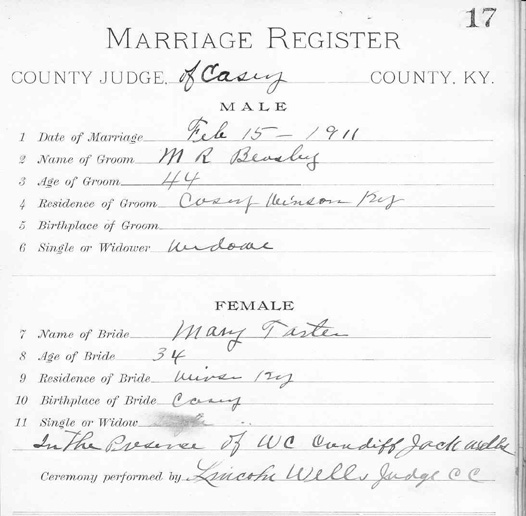 17
MARRIAGE REGISTER
COUNTY JUDGE, of Casey COUNTY, KY.
MALE
1 Date of Marriage Feb 15 - 1911
2 Name of Groom M R Beasley
3 Age of Groom 44
4 Residence of Groom Casey Ky
5 Birthplace of Groom
6 Single or Widower
FEMALE
7 Name of Bride Mary Tarter
8 Age of Bride 34
9 Residence of Bride Ky
10 Birthplace of Bride Casey
11 Single or Widow
In the Presense of WC Cundiff Jack Wells
Ceremony performed by Lincoln Wells Judge C C